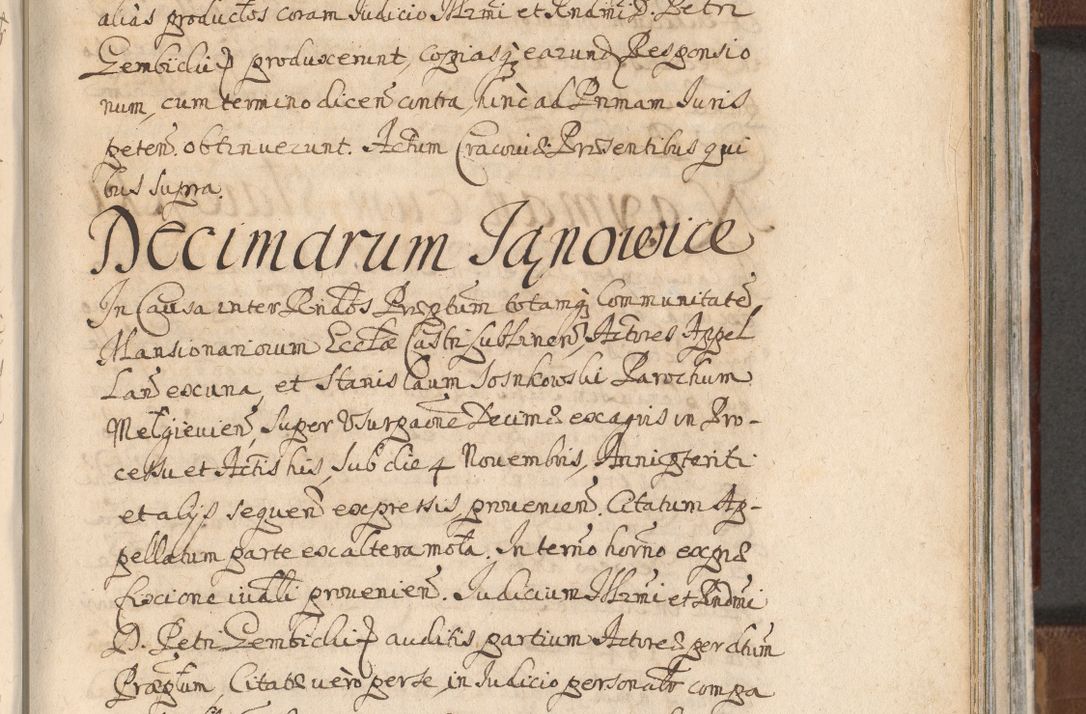 alias productos coram Iudicio Illrmi et Rndmi D. Petri
Gembicki produxerunt, copiasq3 earund Responsio
num, cum termino dicen̄ contra, hinc ad Primam Iuris
peten̄. obtinuerunt. Actum Cracoviæ Præsentibus qui
bus supra.
Decimarum Iąnowice
In Causa inter Rndos Præptum totamq3 Communitatē
Mansionariorum Ecclæ Castri Lublinen̄, Actores Appel
lan̄ ex una, et Stanislaum Sosnkowski Parochum
Melgievien̄, super Usurpaōne Decimæ ex agris in Pro-
cessu et Actis his, sub die 4 Novembris, Anni pteriti
et alijs sequen̄ expressis provenien̄. Citatum Ap-
pellatum parte ex altera mota. In termo horno ex præ
fixione iudli provenien̄. Iudicium Illrmi et Rndmi
D. Petri Gembicki auditis partium Actoreæ per dictum
Præptum, Citatæ vero per se, in Iudicio personalr compa